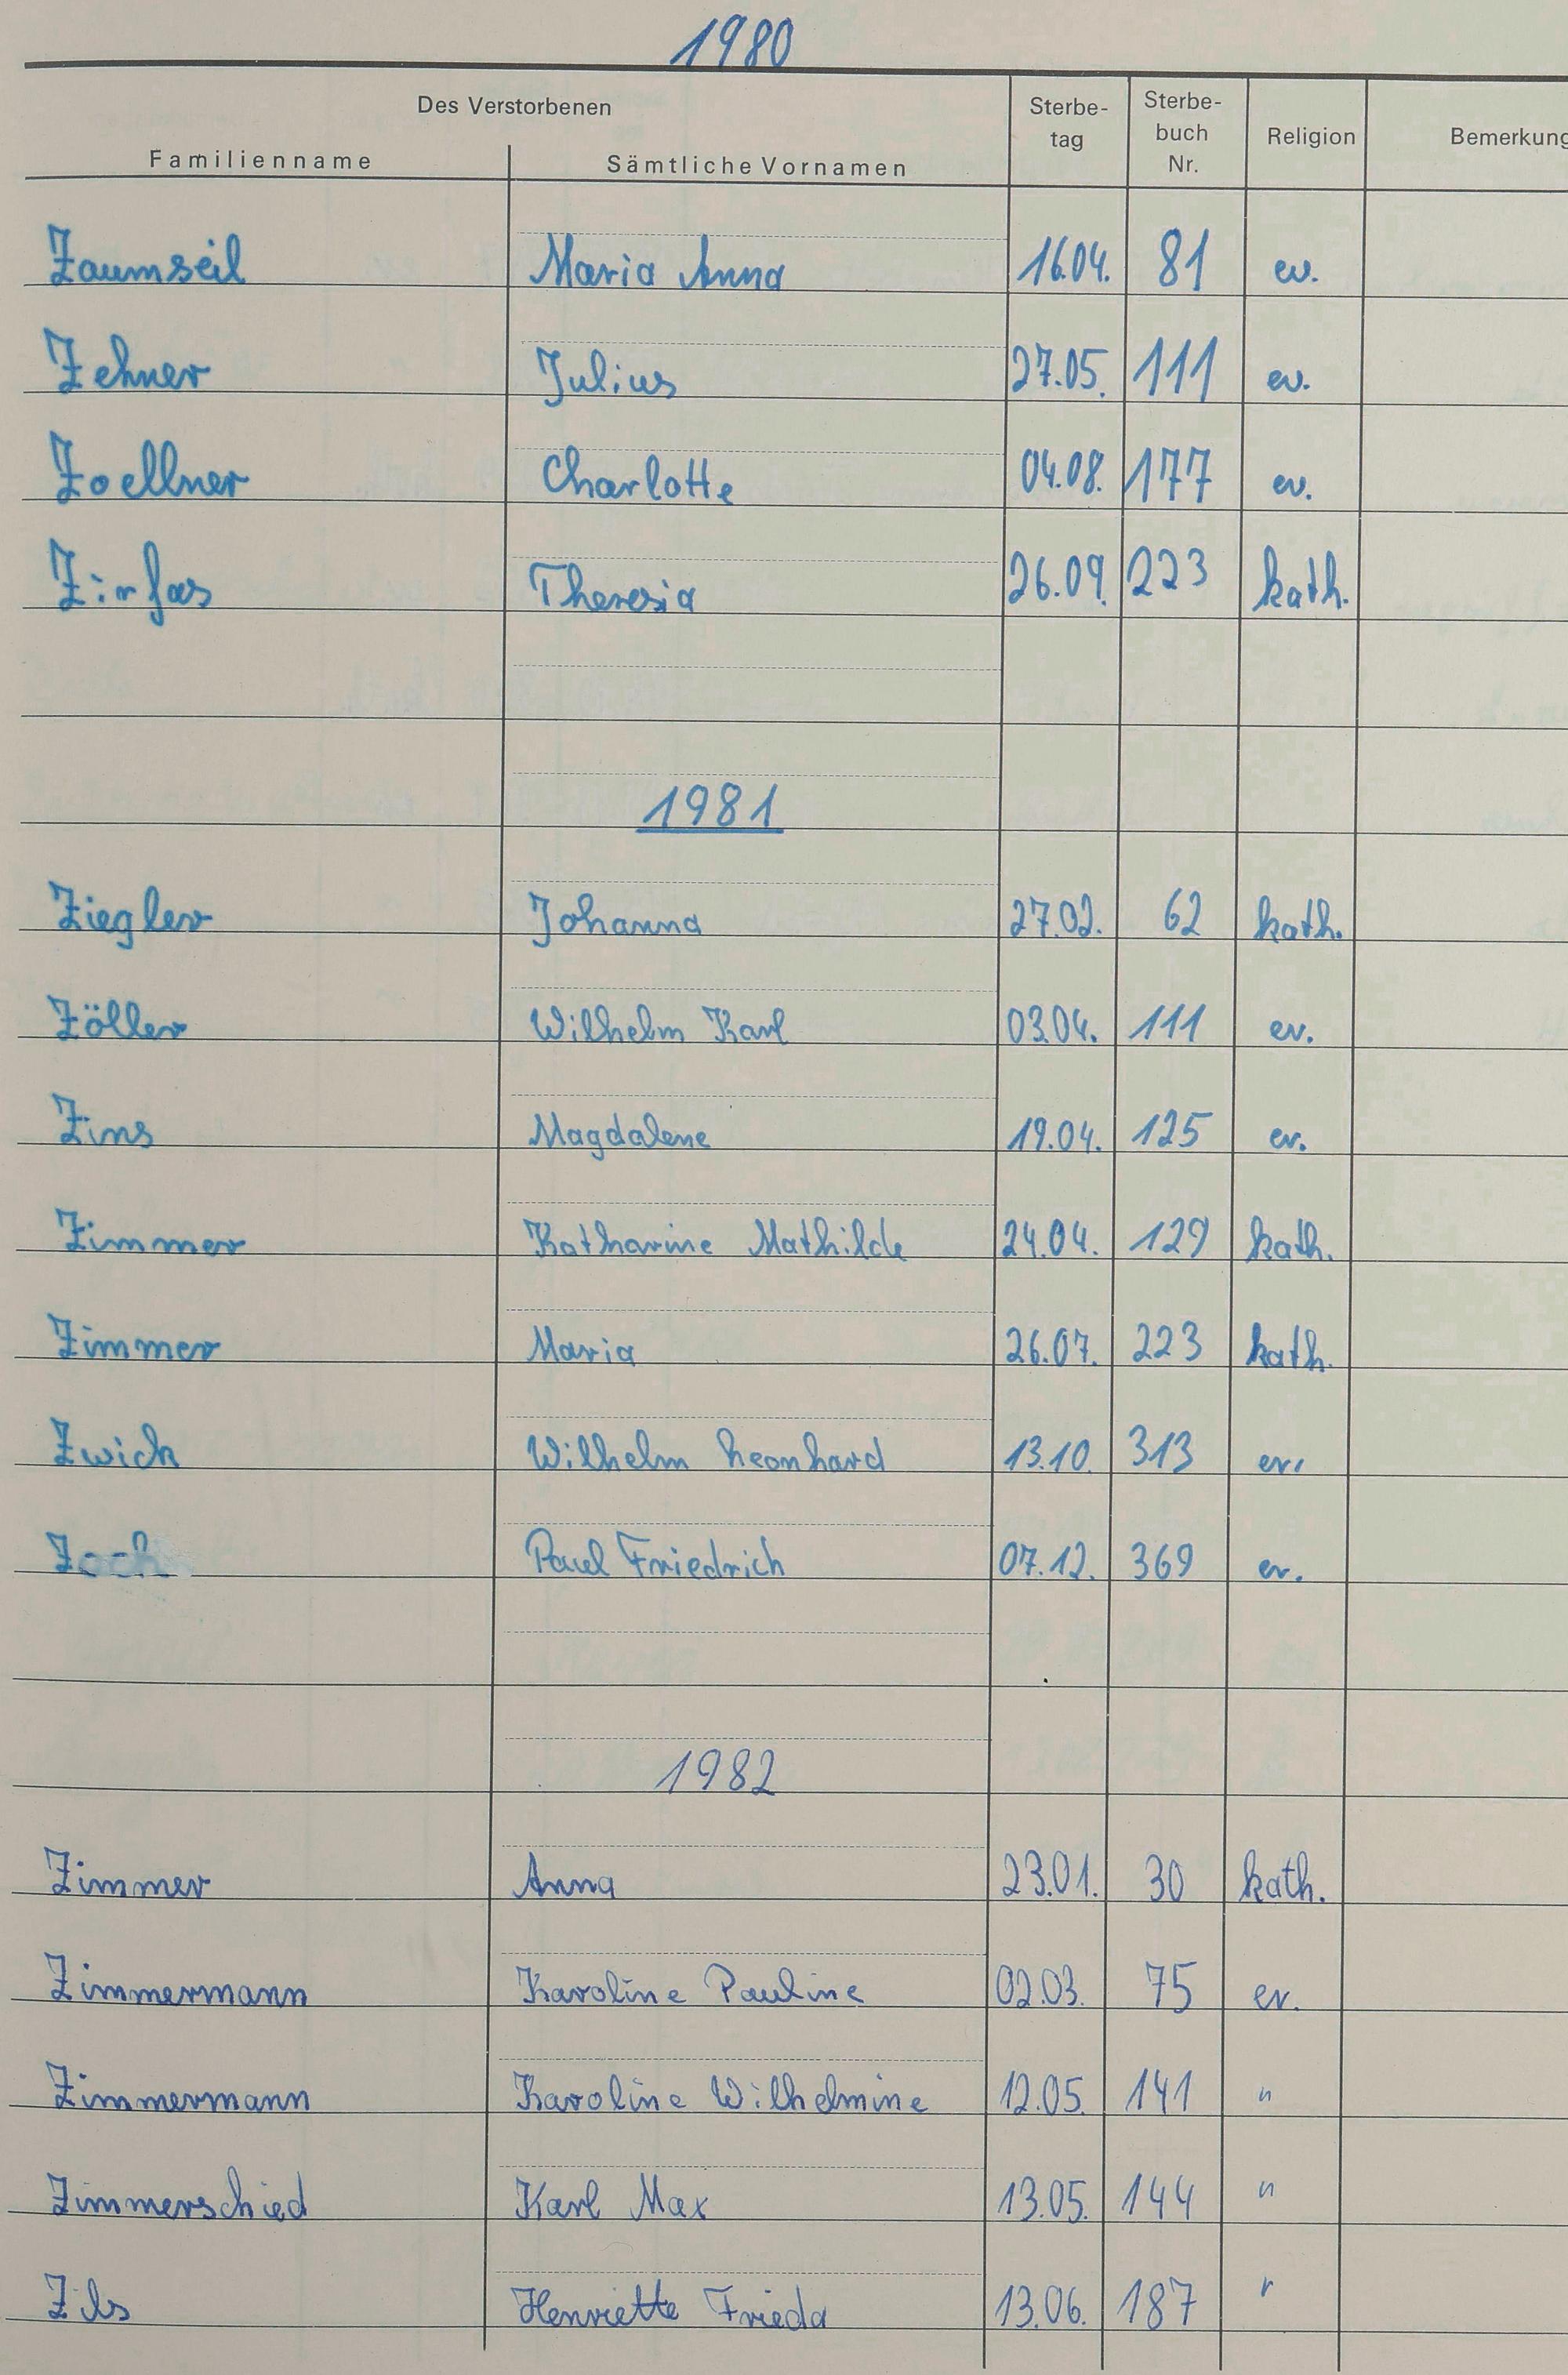 1980
Des Verstorbenen
Familienname Sämtliche Vornamen Sterbe-tag Sterbe-buch Nr. Religion Bemerkung
Zaumseil Maria Anna 16.04. 81 ev.
Zehner Julius 27.05. 111 ev.
Zoellner Charlotte 04.08. 177 ev.
Zirfas Theresia 26.09. 223 kath.
1981
Ziegler Johanna 27.02. 62 kath.
Zöller Wilhelm Karl 03.04. 111 ev.
Zins Magdalene 19.04. 125 ev.
Zimmer Katharine Mathilde 24.04. 129 kath.
Zimmer Maria 26.07. 223 kath.
Zwick Wilhelm Leonhard 13.10. 313 ev.
Zoch Paul Friedrich 07.12. 369 ev.
1982
Zimmer Anna 23.01. 30 kath.
Zimmermann Karoline Pauline 02.03. 75 ev.
Zimmermann Karoline Wilhelmine 12.05. 141 "
Zimmerschied Karl Max 13.05. 144 "
Zils Henriette Frieda 13.06. 187 "